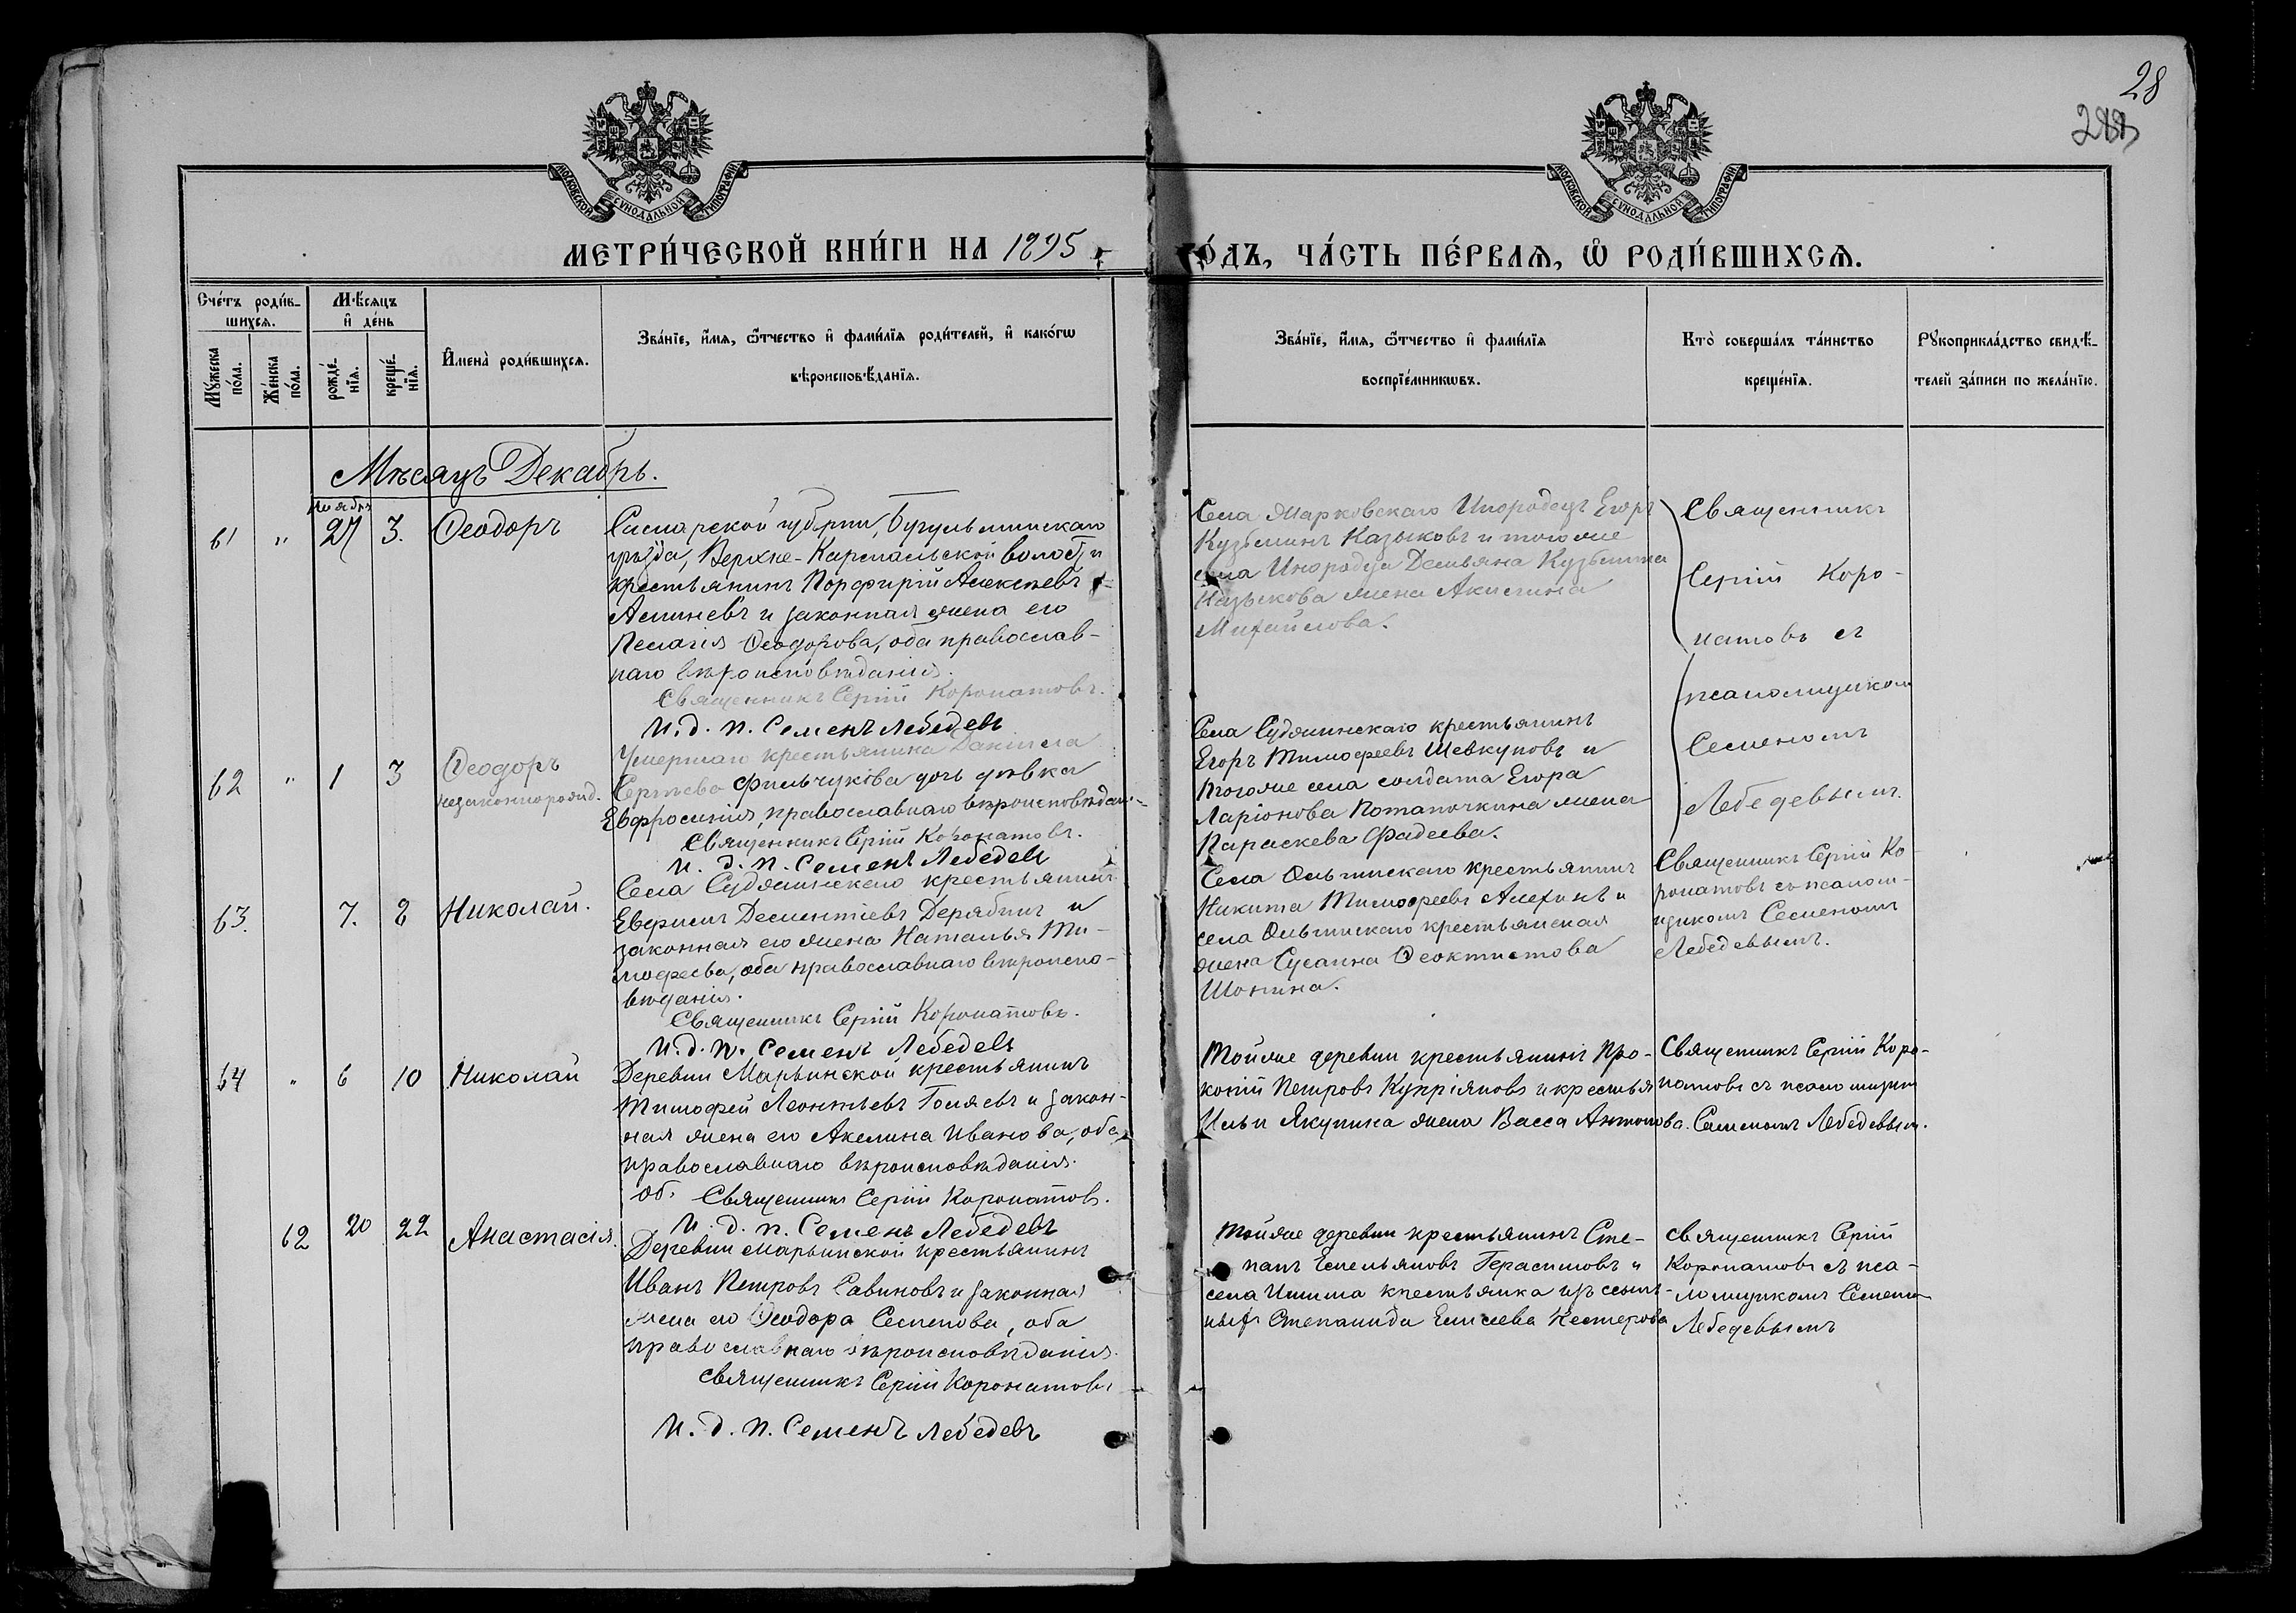 28
МОСКОВСКОЙ СѴНОДАЛЬНОЙ ТИПОГРАФІИ
МОСКОВСКОЙ СѴНОДАЛЬНОЙ ТИПОГРАФІИ
МЕТРИ́ЧЕСКОЙ КНИ́ГИ НА 1895 го́дъ, ча́сть пе́рваѧ, ѡ҆ роди́вшихсѧ.
Сче́тъ роди́в-
шихсѧ.
Мꙋ́жеска по́ла.
Же́нска по́ла.
Мѣ́сѧцъ
и҆ де́нь
рожде́-
нїѧ.
креще́-
нїѧ.
И҆мена̀ роди́вшихсѧ.
Зва́нїе, и҆́мѧ, ѻ҆́тчество и҆ фами́лїѧ роди́телей, и҆ како́гѡ
вѣроисповѣ́данїѧ.
Зва́нїе, и҆́мѧ, ѻ҆́тчество и҆ фами́лїѧ
воспрїе́мникѡвъ.
Кто̀ соверша́лъ та́инство
креще́нїѧ.
Рꙋкоприкла́дство свидѣ́-
телей за́писи по жела́нїю.
Мѣсяцъ Декабрь.
Ноябрь
61 " 27 3. Ѳеодоръ
Самарской губерніи, Бугульминскаго
уѣзда, Верхне-Кармальской волости
крестьянинъ Порфирій Алексѣевъ
и законная жена его
Пелагія Ѳеодорова, оба православ-
наго вѣроисповѣданія.
Священникъ Сергій Коронатовъ.
И.д.п. Семенъ Лебедевъ
Села Марковскаго Инородецъ Егоръ
Кузьминъ Казыковъ и тогоже
села Инородца Демьяна Кузьмина
Казыкова жена Акилина
Михайлова.
Священникъ
Сергій Коро-
натовъ съ
псаломщикомъ
Семеномъ
Лебедевымъ.
62 " 1 3 Ѳеодоръ
незаконнорожд.
Умершаго крестьянина Даніила
Сергѣева Фильчукова дочь дѣвка
Евфросинія, православнаго вѣроисповѣдан-
Священникъ Сергій Коронатовъ.
И.д.п. Семенъ Лебедевъ
Села Судяминскаго крестьянинъ
Егоръ Тимофеевъ Шевкуновъ и
тогоже села солдата Егора
Ларіонова Потапочкина жена
Параскева Фадеева.
63. 7. 8 Николай.
Села Судяминскаго крестьянинъ
Евфимъ Дементіевъ Дерябинъ и
законная его жена Наталья Ти-
мофеева, оба православнаго вѣроиспо-
вѣданія.
Священникъ Сергій Коронатовъ.
И.д.п. Семенъ Лебедевъ
Села Ольгинскаго крестьянинъ
Никита Тимофеевъ Алехинъ и
села Ольгинскаго крестьянская
жена Сусанна Ѳеоктистова
Шонина.
Священникъ Сергій Ко-
ронатовъ съ псалом-
щикомъ Семеномъ
Лебедевымъ.
64 " 6 10 Николай
Деревни Марьинской крестьянинъ
Тимофей Леонтьевъ Голяевъ и закон-
ная жена его Акелина Иванова, оба
православнаго вѣроисповѣданія.
об. Священникъ Сергій Коронатовъ.
И.д.п. Семенъ Лебедевъ
Тойже деревни крестьянинъ Про-
копій Петровъ Купріяновъ и крестья
Ильи Якунина жена Васса Антонова.
Священникъ Сергій Коро-
натовъ съ псаломщик
Семеномъ Лебедевым.
62 20 22 Анастасія.
Деревни Марьинской крестьянинъ
Иванъ Петровъ Савиновъ и законная
жена его Ѳеодора Семенова, оба
православнаго вѣроисповѣданія.
Священникъ Сергій Коронатовъ
И.д.п. Семенъ Лебедевъ
Тойже деревни крестьянинъ Сте-
панъ Емельяновъ Герасимовъ и
села Ишима крестьянка изъ ссыль-
ныхъ Степанида Елисеева Нестерова
Священникъ Сергій
Коронатовъ съ пса-
ломщикомъ Семеном
Лебедевымъ